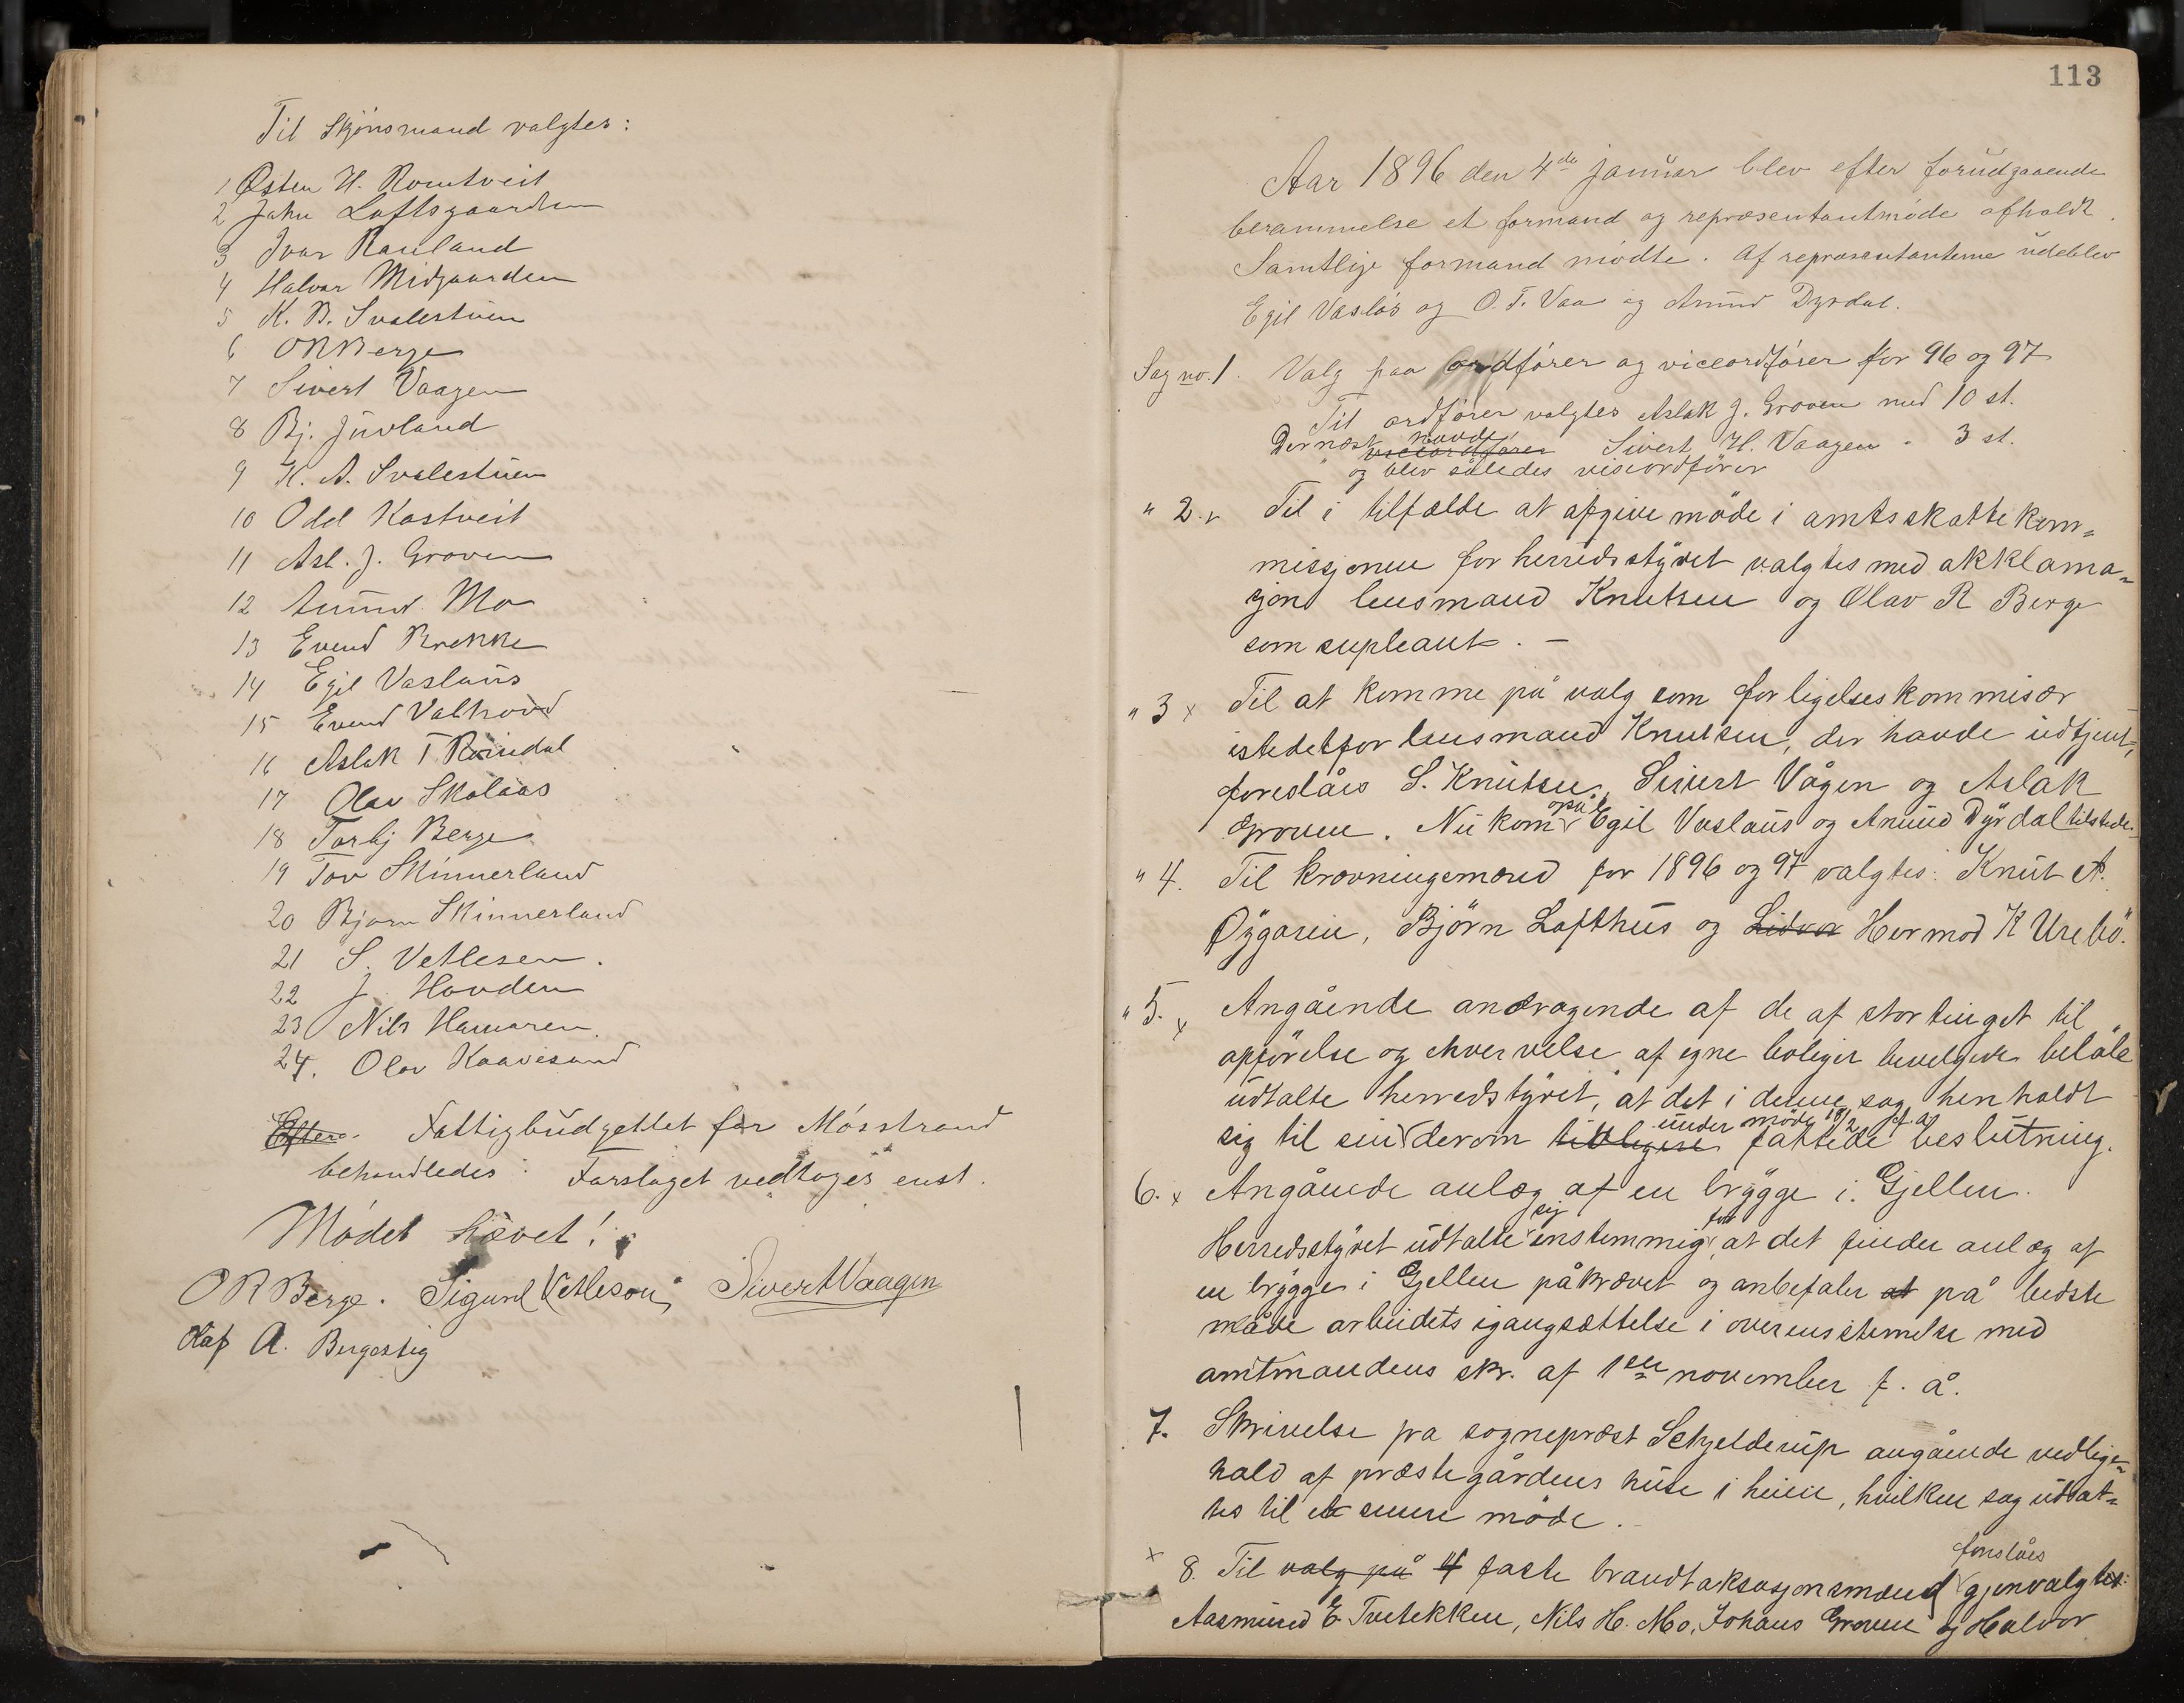 Til Skjönsmænd valgtes:
1 Østen H. Romtveit
2 John Loftsgaarden
3 Ivar Rauland
4 Halvor Midgaarden
5 K. B. Svalestuen
6 O R Berge
7 Sivert Vaagen
8 Bj. Juvland
9 K. A. Svalestuen
10 Odd Kostveit
11 Asl. J. Groven
12 Anund Mo
13 Evend Brekke
14 Egil Vaslaus
15 Evend Valhovd
16 Aslak T Reindal
17 Olav Skalaas
18 Torbj Berge
19 Tov Skinnerland
20 Bjørn Skinnerland
21 S. Vetlesen.
22 J. Hovden
23 Nils Hamaren.
24. Olav Kaavesand
Efter. Fattigbudgettet for Mösstrand
behandledes: Forslaget vedtoges enst.
Mödet hævet!
O R Berge. Sigurd Vetleson; Sivert Vaagen
Olaf A. Bergestig
113
Aar 1896 den 4de januar blev efter forudgaaende
berammelse et formand og repræsentantmöde afholdt.
Samtlige formænd mödte. Af repræsentanterne udeblev
Egil Vaslös og O. T. Vaa og Anund Dyrdal.
Sag no. 1. Valg paa ordförer og viceordförer for 96 og 97
Til ordförer valgtes Aslak J. Groven med 10 st.
Dernæst havde viceordförer Sivert H. Vaagen " 3 st.
og blev således viseordförer
" 2. Til i tilfælde at afgive möde i amtsskattekom=
missjonen for herredsstyret valgtes med akklama=
sjon lensmand Knutsen og Olav R Berge
som supleant. —
" 3 x Til at komme på valg som forligelseskommisær
istedetfor lensmand Knutsen, der havde udtjent,
foreslåes S. Knutsen, Sivert Vågen og Aslak
Groven. Nu kom også Egil Vaslaus og Anund Dyrdal tilstede.
" 4. Til krævningsmænd for 1896 og 97 valgtes: Knut A.
Øygaren, Björn Lofthus og Lidvor Hermod K Urebö.
" 5. x Angående andragende af de af stortinget til
opförelse og erhvervelse af egne boliger bevilgede belöb
udtalte herredstyret, at det i denne sag henholdt
sig til sin derom tidligere under möde 18/2 f. a. fattede beslutning.
6. x Angående anlæg af en brygge i Gjellen.
Herredsstyret udtalte sig enstemmig for, at det finder anlæg af
en brygge i Gjellen påkrævet og anbefaler at på bedste
måde arbeidets igangsættelse i overensstemelse med
amtmandens skr. af 1ste november f. å.
7. Skrivelse fra sogneprest Schjelderup angående vedlige=
hold af præstegårdens huse i heien, hvilken sag udsat=
tes til et senere möde.
x 8. Til valg på 4 faste brandtaksasjonsmænd foreslåes gjenvalgtes:
Aasmund E. Tvetekken, Nils H. Mo, Johans Groven og Halvor